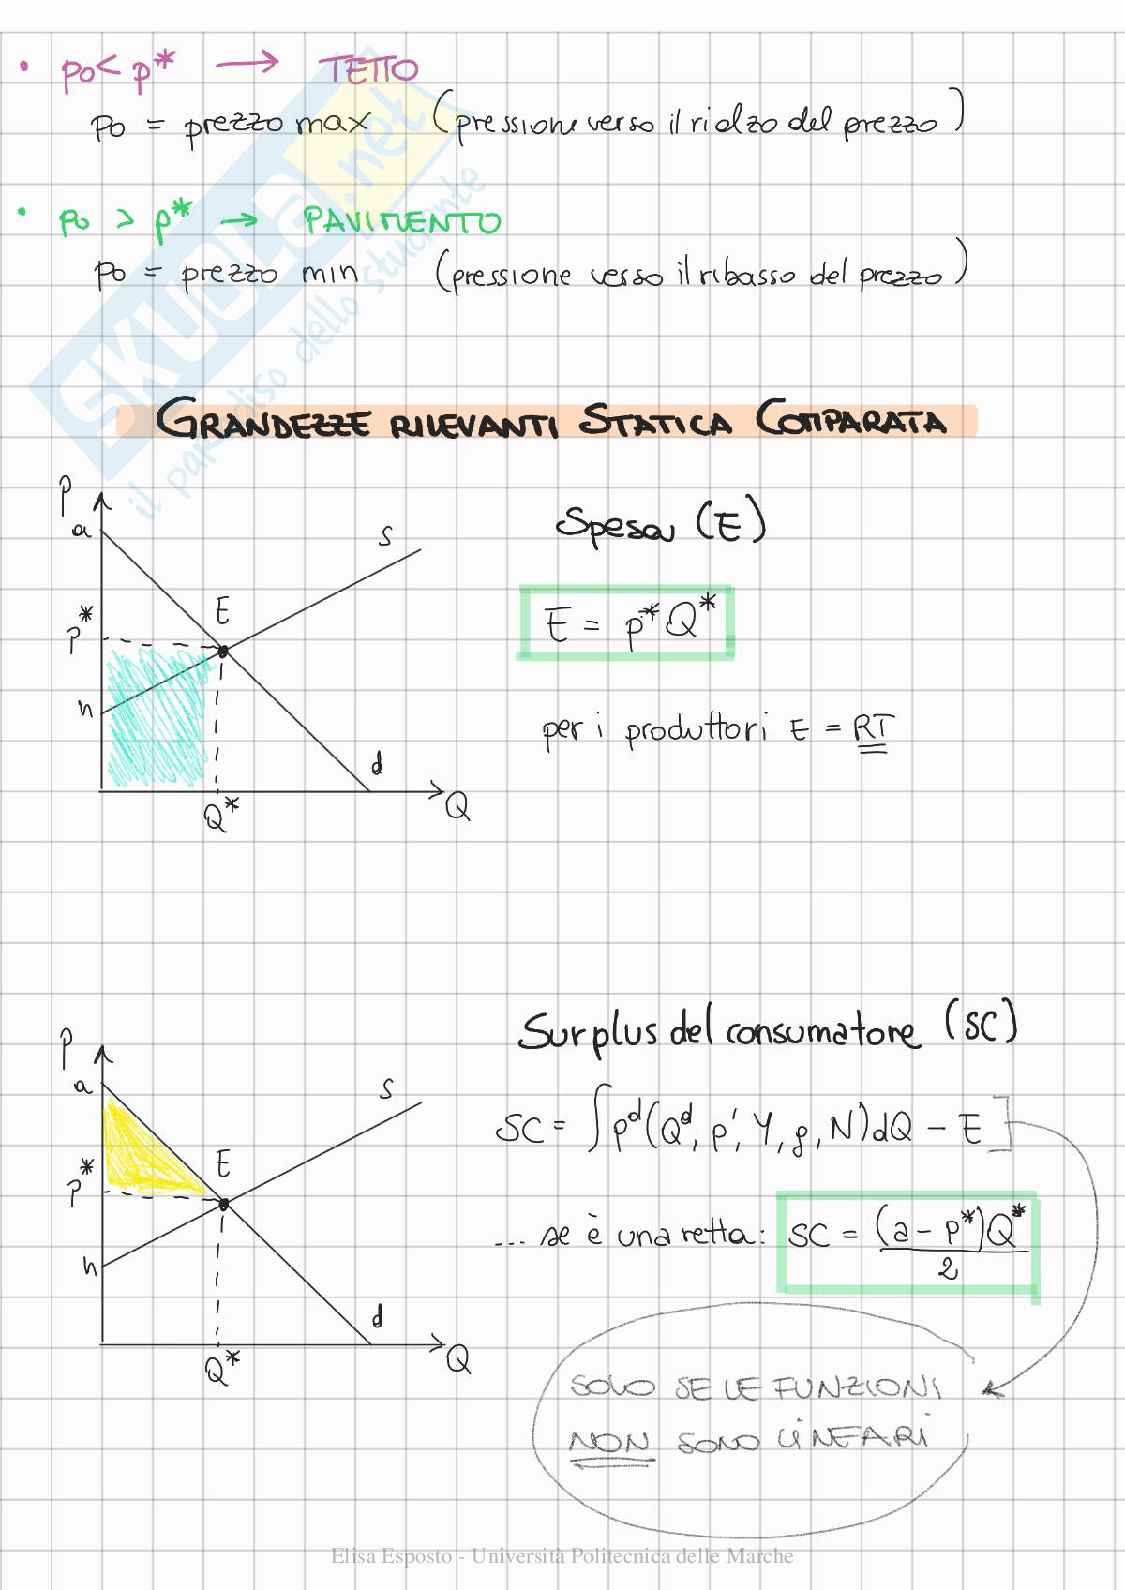 • po < p* → TETTO
po = prezzo max (pressione verso il rialzo del prezzo)
• po > p* → PAVIMENTO
po = prezzo min (pressione verso il ribasso del prezzo)
SKUOLA.net
il paradiso dello studente
GRANDEZZE RILEVANTI STATICA COMPARATA
P
a
S
Spesa (E)
E
p*
E = p* Q*
h
per i produttori E = RT
d
Q*
Q
Surplus del consumatore (SC)
P
a
S
SC = ∫ pd(Qd, p', Y, g, N)dQ - E
E
p*
... se è una retta: SC = (a - p*)Q* / 2
h
d
Q*
Q
SOLO SE LE FUNZIONI
NON SONO LINEARI
Elisa Esposto - Università Politecnica delle Marche